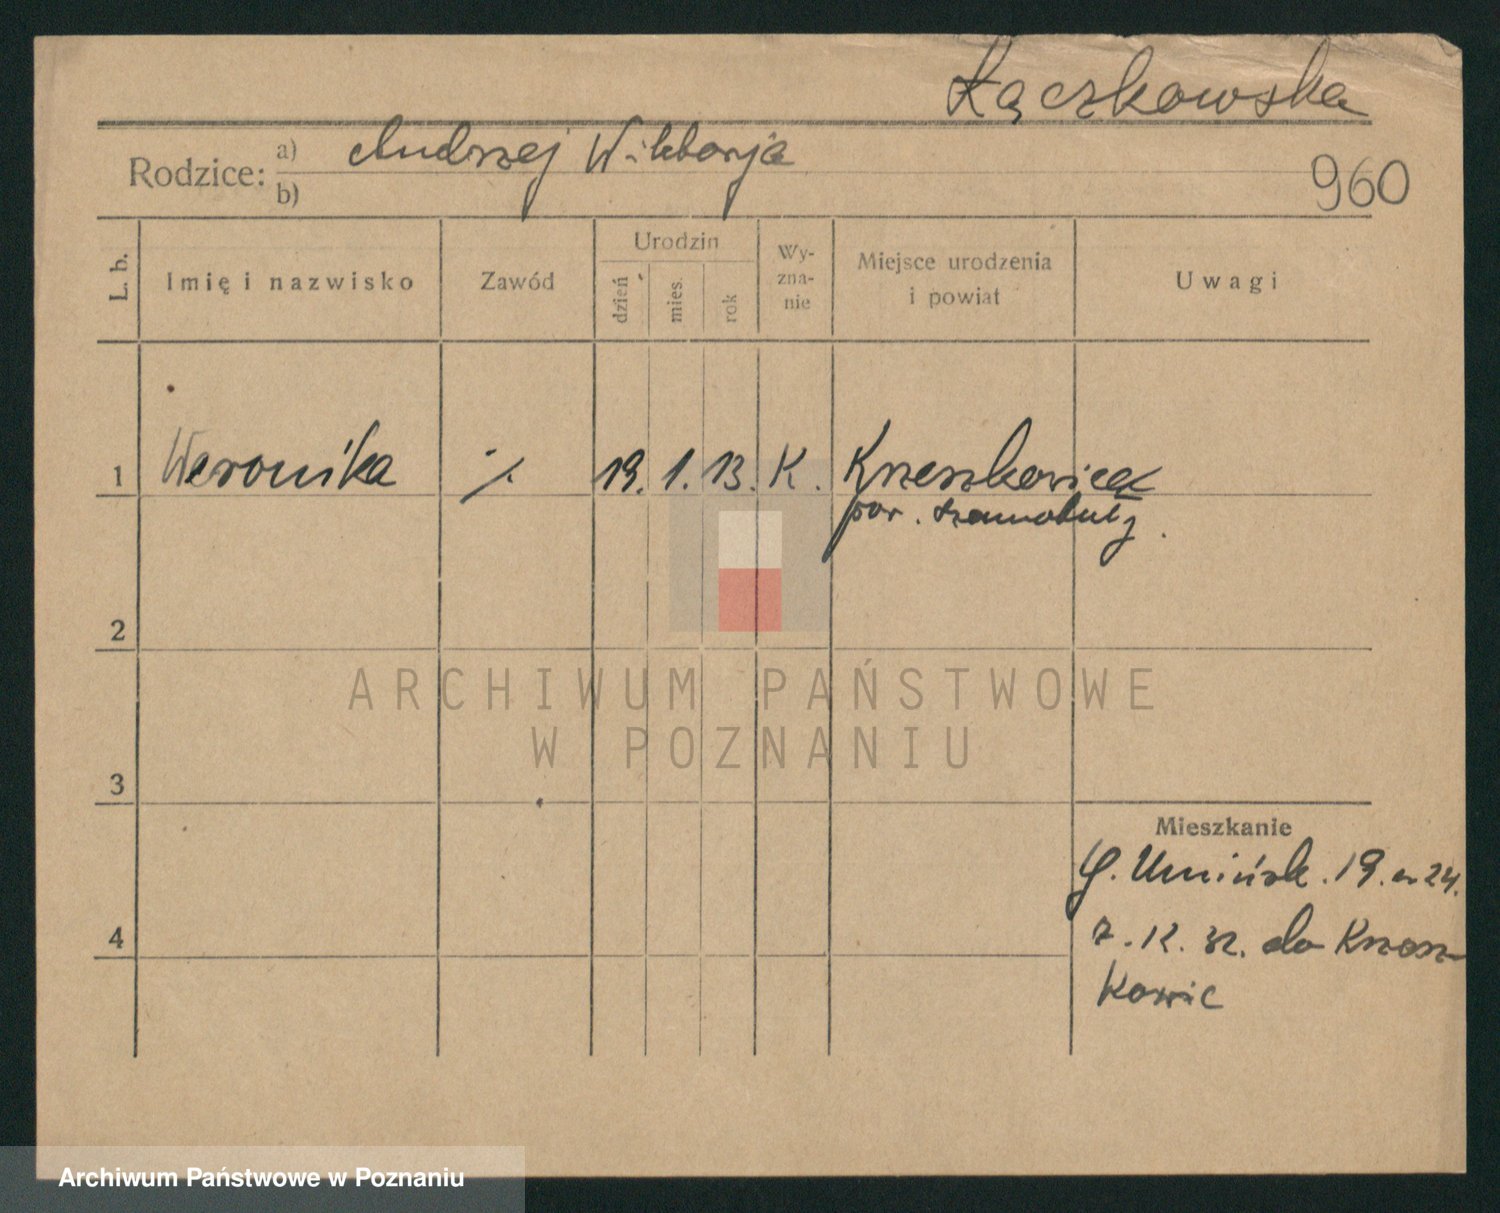 Łączkowska
Rodzice: a) Andrzej Wiktorja
b)
960
L. b.
Imię i nazwisko
Zawód
Urodzin
dzień
mies.
rok
Wy-
zna-
nie
Miejsce urodzenia
i powiat
Uwagi
1 Weronika ./. 19. 1. 13. K.
pow. Szamotuły.
2
3
4
Mieszkanie
G. Umińsk. 19. m 24.
7. 12. 32. do Krzesz-
kowic
ARCHIWUM PAŃSTWOWE
W POZNANIU
Archiwum Państwowe w Poznaniu